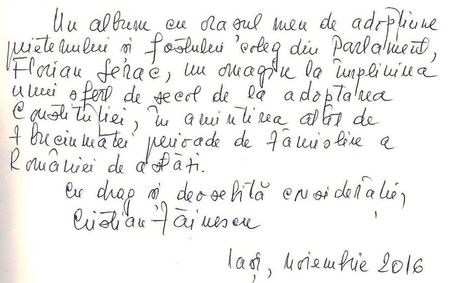 Un album cu orașul meu de adopțiune
prietenului și fostului coleg din Parlament,
Florian Serac, un omagiu la împlinirea
unui sfert de secol de la adoptarea
Constituției, în amintirea de
perioade de a
României de astăzi.
Cu drag și deosebită considerație,
Cristian
Iași, noiembrie 2016